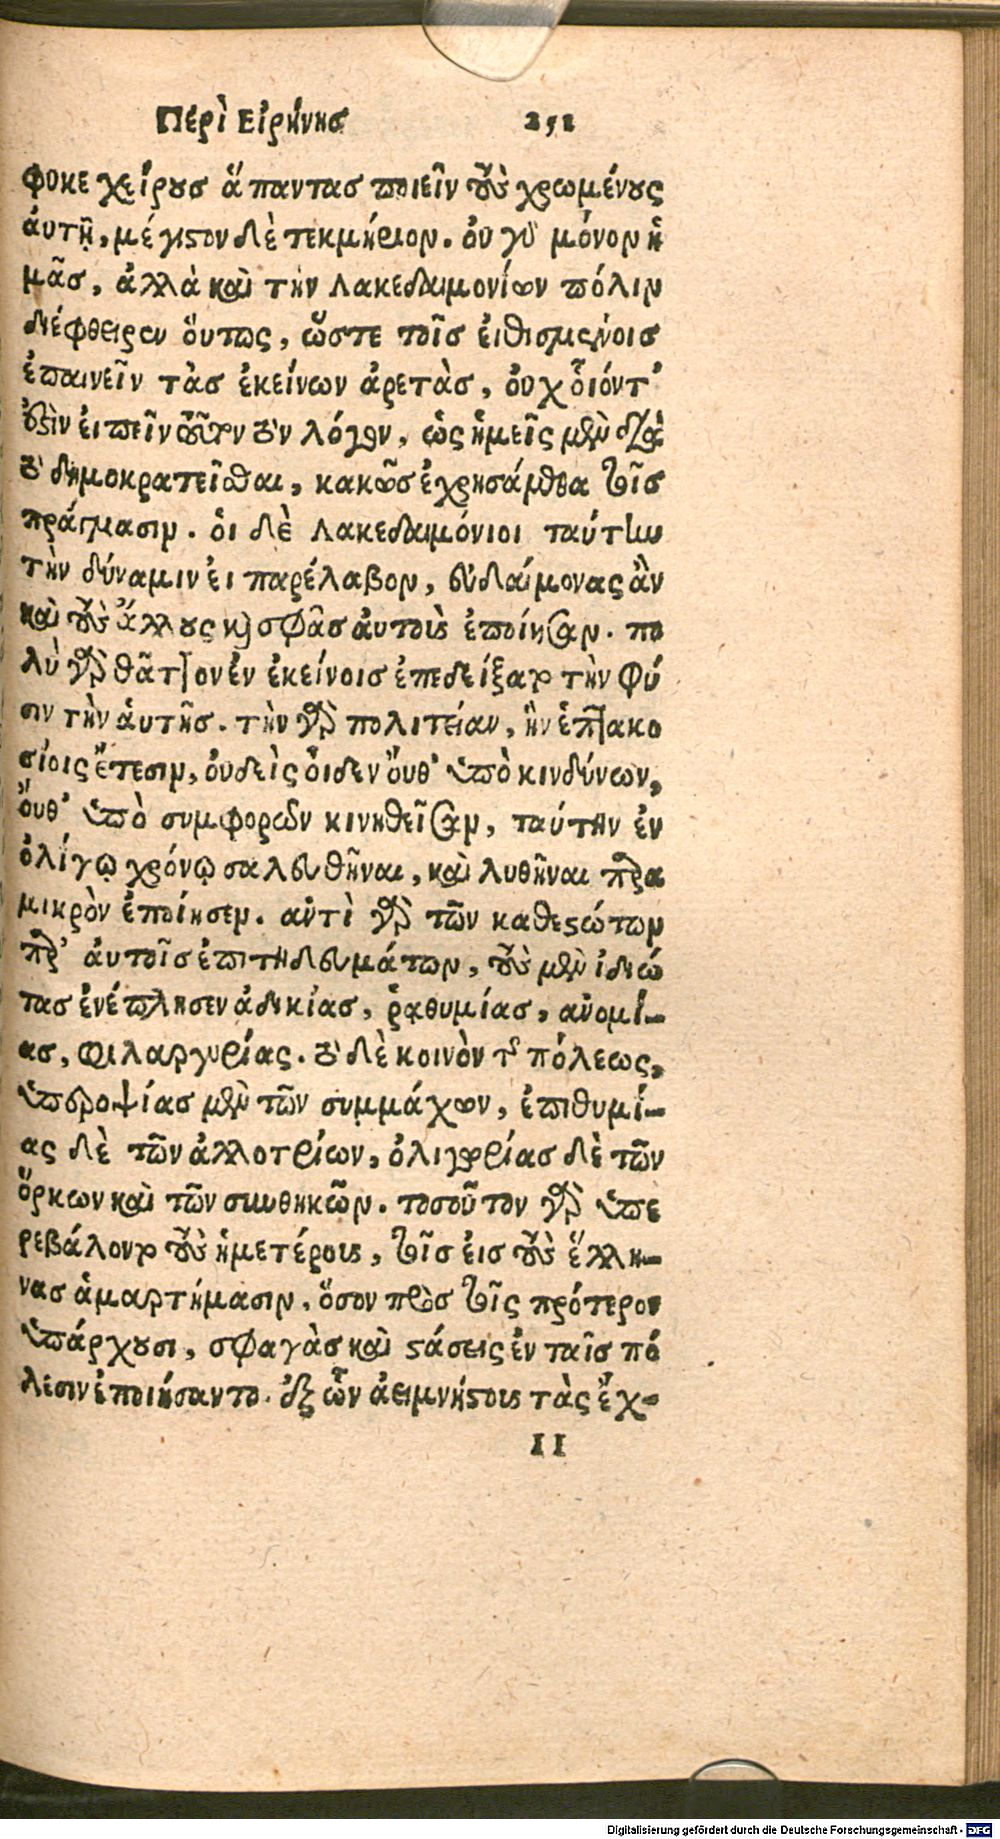 Περὶ Εἰρήνης 251
φυκε χείρους ἅπαντας ποιεῖν τοὺς χρωμένους
ἀυτῇ, μέγιστον δὲ τεκμήριον. ὀυ γὰρ μόνον ἡ
μᾶς, ἀλλὰ καὶ τὴν Λακεδαιμονίων πόλιν
διέφθειρεν ὅυτως, ὥστε τοῖς ἐιθισμένοις
ἐπαινεῖν τὰς ἐκείνων ἀρετὰς, ὀυχ ὁιόντ'
ἐστὶν ἐιπεῖν τοῦτον τὸν λόγον, ὡς ἡμεῖς μὲν διὰ
τὸ δημοκρατεῖσθαι, κακῶς ἐχρησάμεθα τοῖς
πράγμασιν. ὁι δὲ Λακεδαιμόνιοι ταύτην
τὴν δύναμιν ἐι παρέλαβον, ἐυδαίμονας ἂν
καὶ τοὺς ἄλλους καὶ σφᾶς ἀυτοὺς ἐποίησαν. πο
λὺ γὰρ θᾶττον ἐν ἐκείνοις ἐπεδείξατο τὴν φύ
σιν τὴν ἁυτῆς. τὴν γὰρ πολιτείαν, ἣν ἑπτακο
σίοις ἔτεσιν, ὀυδεὶς ὀιδεν ὄυθ' ὑπὸ κινδύνων,
ὄυθ' ὑπὸ συμφορῶν κινηθεῖσαν, ταύτην ἐν
ὀλίγῳ χρόνῳ σαλευθῆναι, καὶ λυθῆναι παρα
μικρὸν ἐποίησεν. ἀντὶ γὰρ τῶν καθεστώτων
παρ' ἀυτοῖς ἐπιτηδευμάτων, τοὺς μὲν ἰδιώ
τας ἐνέπλησεν ἀδικίας, ῥᾳθυμίας, ἀνομί-
ας, φιλαργυρίας. τὸ δὲ κοινὸν τῆς πόλεως,
ὑπεροψίας μὲν τῶν συμμάχων, ἐπιθυμί-
ας δὲ τῶν ἀλλοτρίων, ὀλιγωρίας δὲ τῶν
ὅρκων καὶ τῶν συνθηκῶν. τοσοῦτον γὰρ ὑπε
ρεβάλοντο τοὺς ἡμετέρους, τοῖς ἐις τοὺς ἕλλη-
νας ἁμαρτήμασιν, ὅσον πρὸς τοῖς πρότερον
ὑπάρχουσι, σφαγὰς καὶ στάσεις ἐν ταῖς πό
λεσιν ἐποιήσαντο. ἐξ ὧν ἀειμνήστους τὰς ἔχ-
II
Digitalisierung gefördert durch die Deutsche Forschungsgemeinschaft - DFG